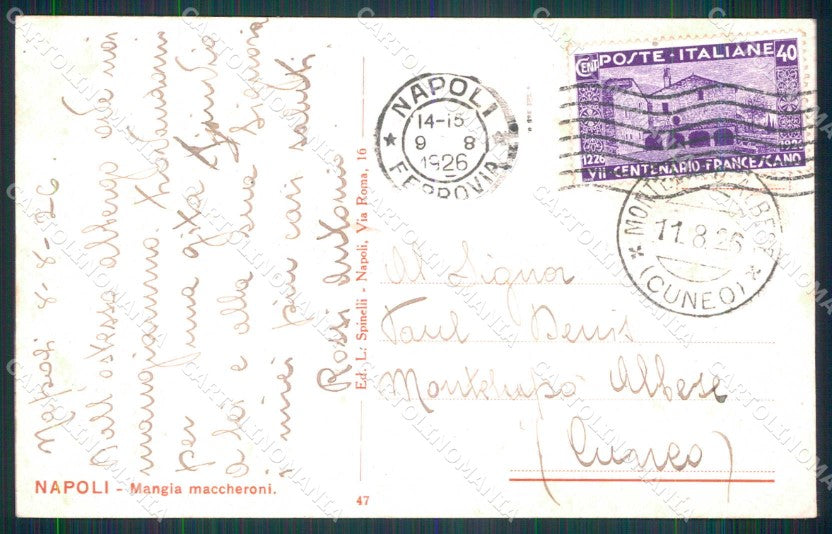 Napoli 8-8-26.
Dall'stesso albergo ove noi
mangiavamo
per una gita
a Lei e alla Sua Signora
i miei più cari saluti
Rossi Antonio
Ed. L. Spinelli - Napoli, Via Roma, 16
NAPOLI - Mangia maccheroni.
47
NAPOLI
14-15
9 8
1926
FERROVIA
POSTE · ITALIANE
CENT 40
1226 1926
VII · CENTENARIO · FRANCESCANO
11.8.26
(CUNEO)
Al Signor
Paul Denis
Albese
(Cuneo)
CARTOLINOMANIA